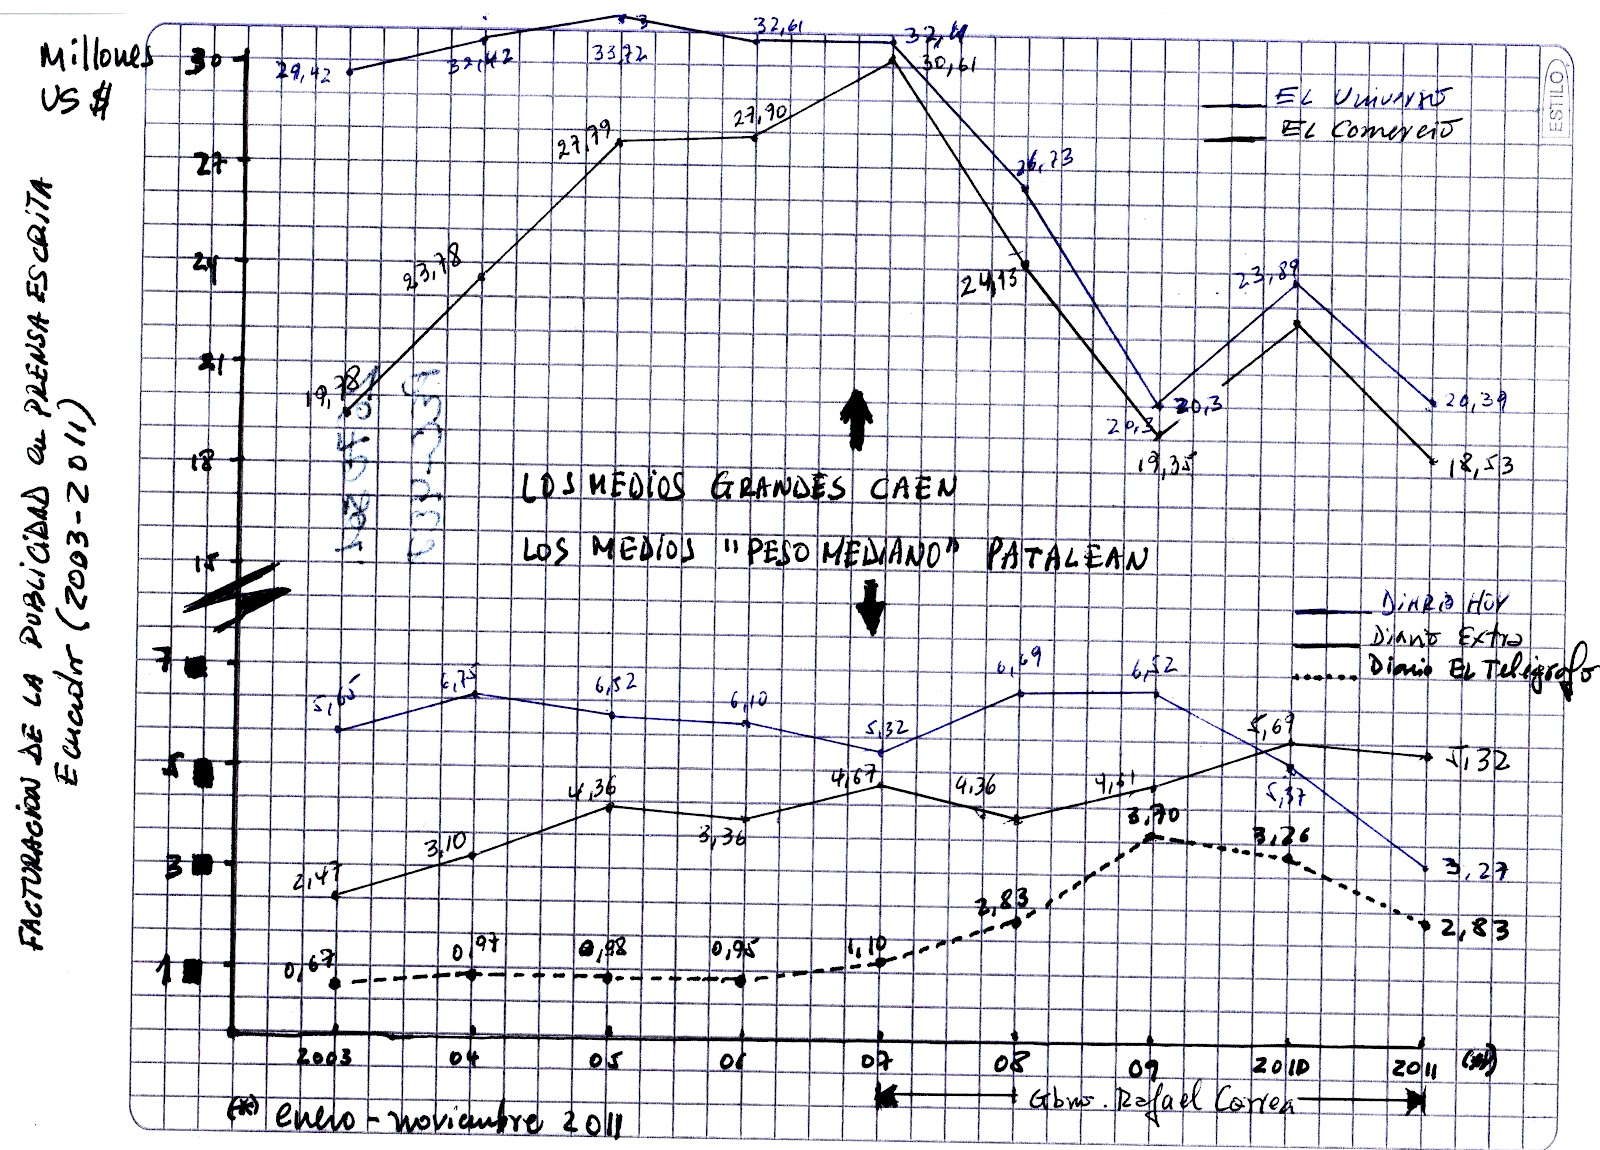 Millones
US $
FACTURACION DE LA PUBLICIDAD en PRENSA ESCRITA
Ecuador (2003-2011)
30
27
24
21
18
15
7
5
3
1
29,42
32,42
33,72
32,61
30,61
ESTILO
EL Universo
EL Comercio
19,78
23,78
27,79
27,90
26,73
24,13
20,3
20,3
19,35
23,89
20,39
18,53
LOS MEDIOS GRANDES CAEN
LOS MEDIOS "PESO MEDIANO" PATALEAN
DIARIO HOY
Diario Extra
Diario EL Telégrafo
5,65
6,75
6,52
6,10
5,32
6,69
6,52
5,37
3,27
2,47
3,10
4,36
3,36
4,67
4,36
4,61
5,69
5,32
0,67
0,97
0,98
0,95
1,10
2,83
3,70
3,26
2,83
2003 04 05 06 07 08 09 2010 2011
Gbno. Rafael Correa
(*) enero - noviembre 2011